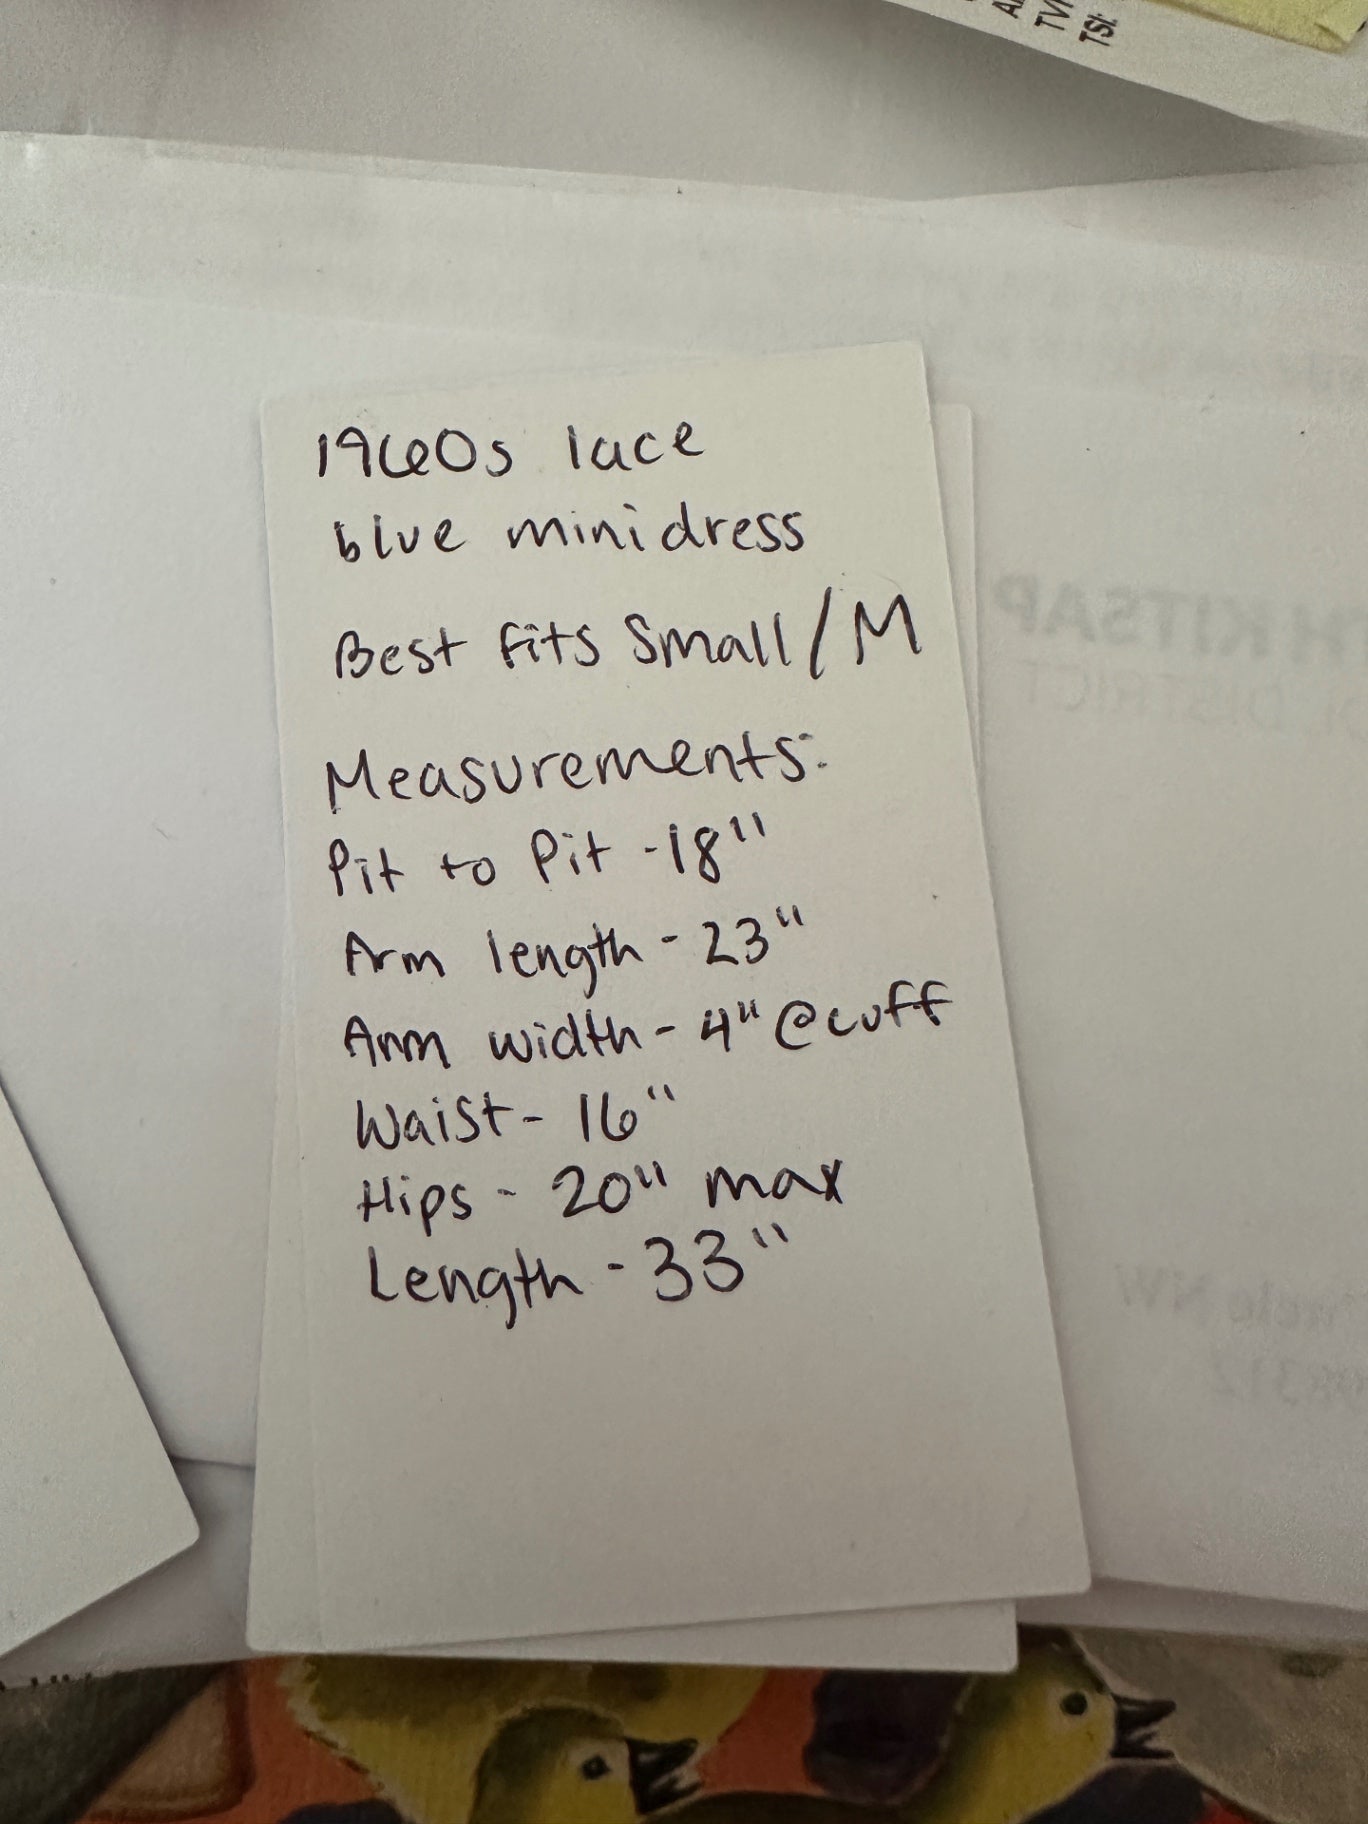 TSI:
1960s lace
blue minidress
Best fits Small/M
Measurements:
Pit to Pit -18"
Arm length - 23"
Arm width - 4" @cuff
Waist - 16"
Hips - 20" max
Length - 33"
KITSAP
DISTRICT
98312